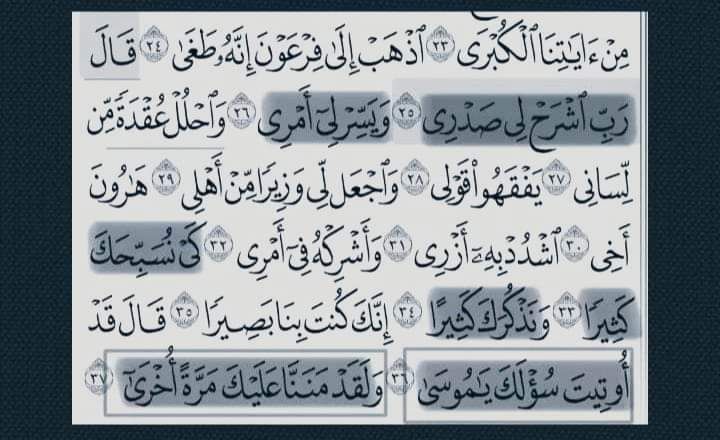 مِنْ ءَايَٰتِنَا ٱلْكُبْرَى ٢٣ ٱذْهَبْ إِلَىٰ فِرْعَوْنَ إِنَّهُۥ طَغَىٰ ٢٤ قَالَ
رَبِّ ٱشْرَحْ لِى صَدْرِى ٢٥ وَيَسِّرْ لِىٓ أَمْرِى ٢٦ وَٱحْلُلْ عُقْدَةً مِّن
لِّسَانِى ٢٧ يَفْقَهُوا۟ قَوْلِى ٢٨ وَٱجْعَل لِّى وَزِيرًا مِّنْ أَهْلِى ٢٩ هَٰرُونَ
أَخِى ٣٠ ٱشْدُدْ بِهِۦٓ أَزْرِى ٣١ وَأَشْرِكْهُ فِىٓ أَمْرِى ٣٢ كَىْ نُسَبِّحَكَ
كَثِيرًا ٣٣ وَنَذْكُرَكَ كَثِيرًا ٣٤ إِنَّكَ كُنتَ بِنَا بَصِيرًا ٣٥ قَالَ قَدْ
أُوتِيتَ سُؤْلَكَ يَٰمُوسَىٰ ٣٦ وَلَقَدْ مَنَنَّا عَلَيْكَ مَرَّةً أُخْرَىٰٓ ٣٧